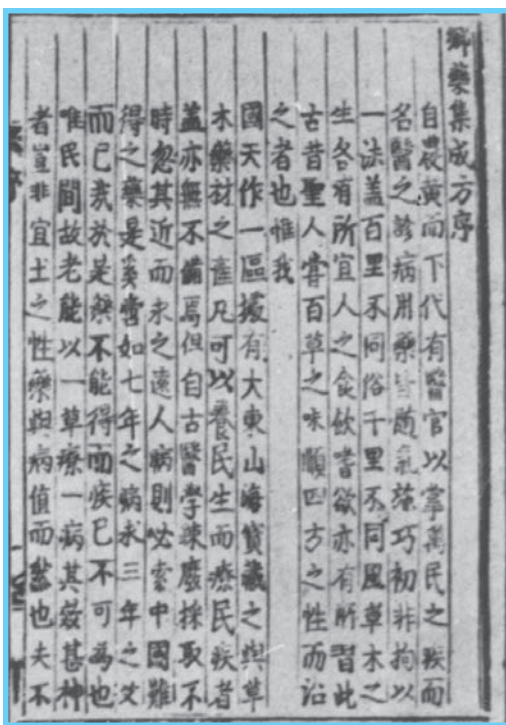 鄉藥集成方序
自農黃而下代有醫官以掌萬民之疾而
名醫之診病用藥皆隨氣施巧初非拘以
一法盖百里不同俗千里不同風草木之
生各有所宜人之食飲嗜欲亦有所習此
古昔聖人嘗百草之味順四方之性而治
之者也惟我
國天作一區據有大東山海寶藏之興草
木藥材之產凡可以養民生而療民疾者
盖亦無不備焉但自古醫學疎廢採取不
時忽其近而求之遠人病則必索中國難
得之藥是奚啻如七年之病求三年之艾
而已哉於是藥不能得而疾已不可為也
唯民間故老能以一草療一病其效甚神
者豈非宜土之性藥與病值而然也夫不